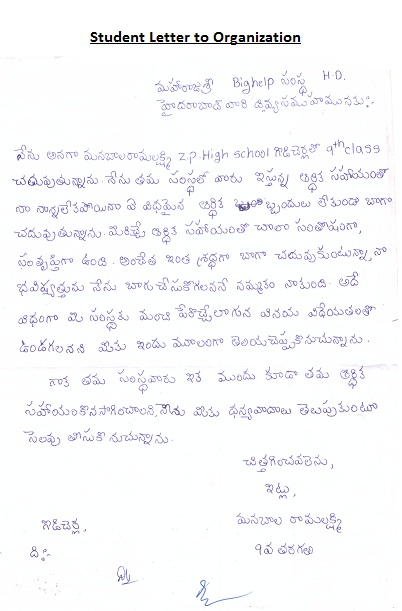 Student Letter to Organization
మహారాజశ్రీ Bighelp సంస్థ H.D.
హైదరాబాద్ వారి దివ్యసముహమునకు:-
నేను అనగా మనబాలరామలక్ష్మి Z.P. High school గొడిచెర్లలో 9th class
చదువుతున్నాను. నేను తమ సంస్థలో వారు ఇస్తున్న ఆర్థిక సహాయంతో
నా నాన్నలేకపోయినా ఏ విధమైన ఆర్థిక ఇబ్బందులు లేకుండా బాగా
చదువుతున్నాను. మీరిచ్చే ఆర్థిక సహాయంతో చాలా సంతోషంగా,
సంతృప్తిగా ఉంది. అంతేత ఇంత శ్రద్ధగా బాగా చదువుకుంటున్నా, నా
భవిష్యత్తును నేను బాగుచేసుకోగలననే నమ్మకం నాకుంది. అదే
విధంగా మీ సంస్థకు మంచి పేరొచ్చేలాగున వినయ విధేయతంతో
ఉండగలనని మీకు ఇందు మూలంగా తెలియచెప్పుకొనుచున్నాను.
గాక తమ సంస్థవారు ఇక ముందు కూడా తమ ఆర్థిక
సహాయంకొనసాగించాలని, నేను మీకు ధన్యవాదాలు తెలుపుకుంటూ
సెలవు తీసుకొనుచున్నాను.
చిత్తగించవలెను,
ఇట్లు,
గొడిచెర్ల, మనబాల రామలక్ష్మి
ది:- 9వ తరగతి